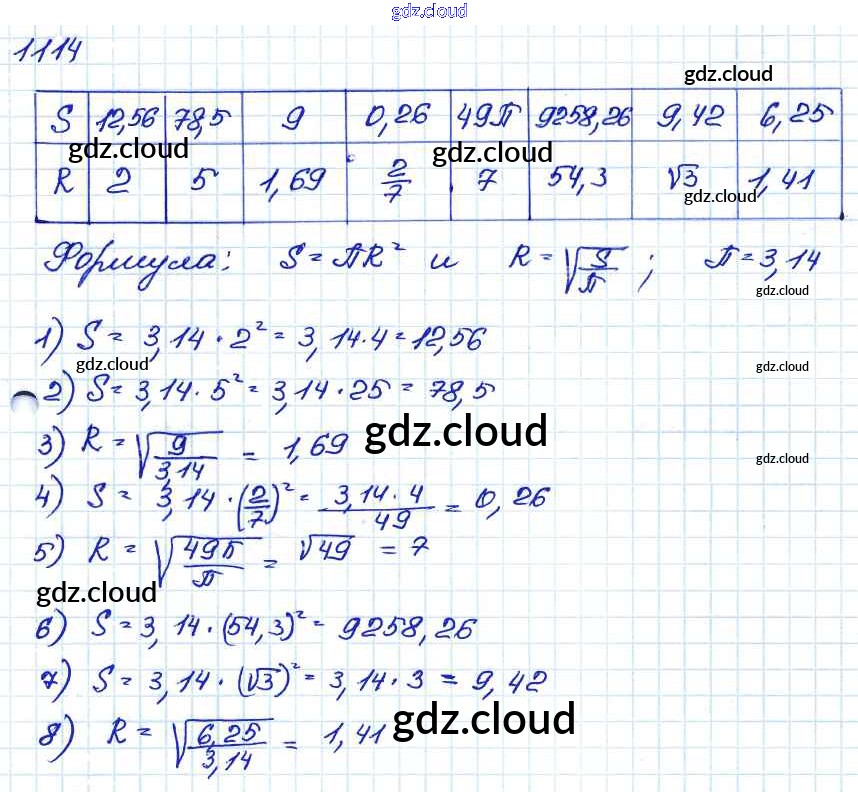 gdz.cloud
1114
gdz.cloud
S 12,56 78,5 9 0,26 49П 9258,26 9,42 6,25
gdz.cloud gdz.cloud
R 2 5 1,69 2/7 7 54,3 √3 1,41
gdz.cloud
Формула: S = ПR² и R = √S/П ; П = 3,14
gdz.cloud
1) S = 3,14 · 2² = 3,14 · 4 = 12,56
gdz.cloud gdz.cloud
2) S = 3,14 · 5² = 3,14 · 25 = 78,5
3) R = √9/3,14 = 1,69
gdz.cloud gdz.cloud
4) S = 3,14 · (2/7)² = 3,14 · 4/49 = 0,26
5) R = √49П/П = √49 = 7
gdz.cloud
6) S = 3,14 · (54,3)² = 9258,26
7) S = 3,14 · (√3)² = 3,14 · 3 = 9,42
8) R = √6,25/3,14 = 1,41
gdz.cloud